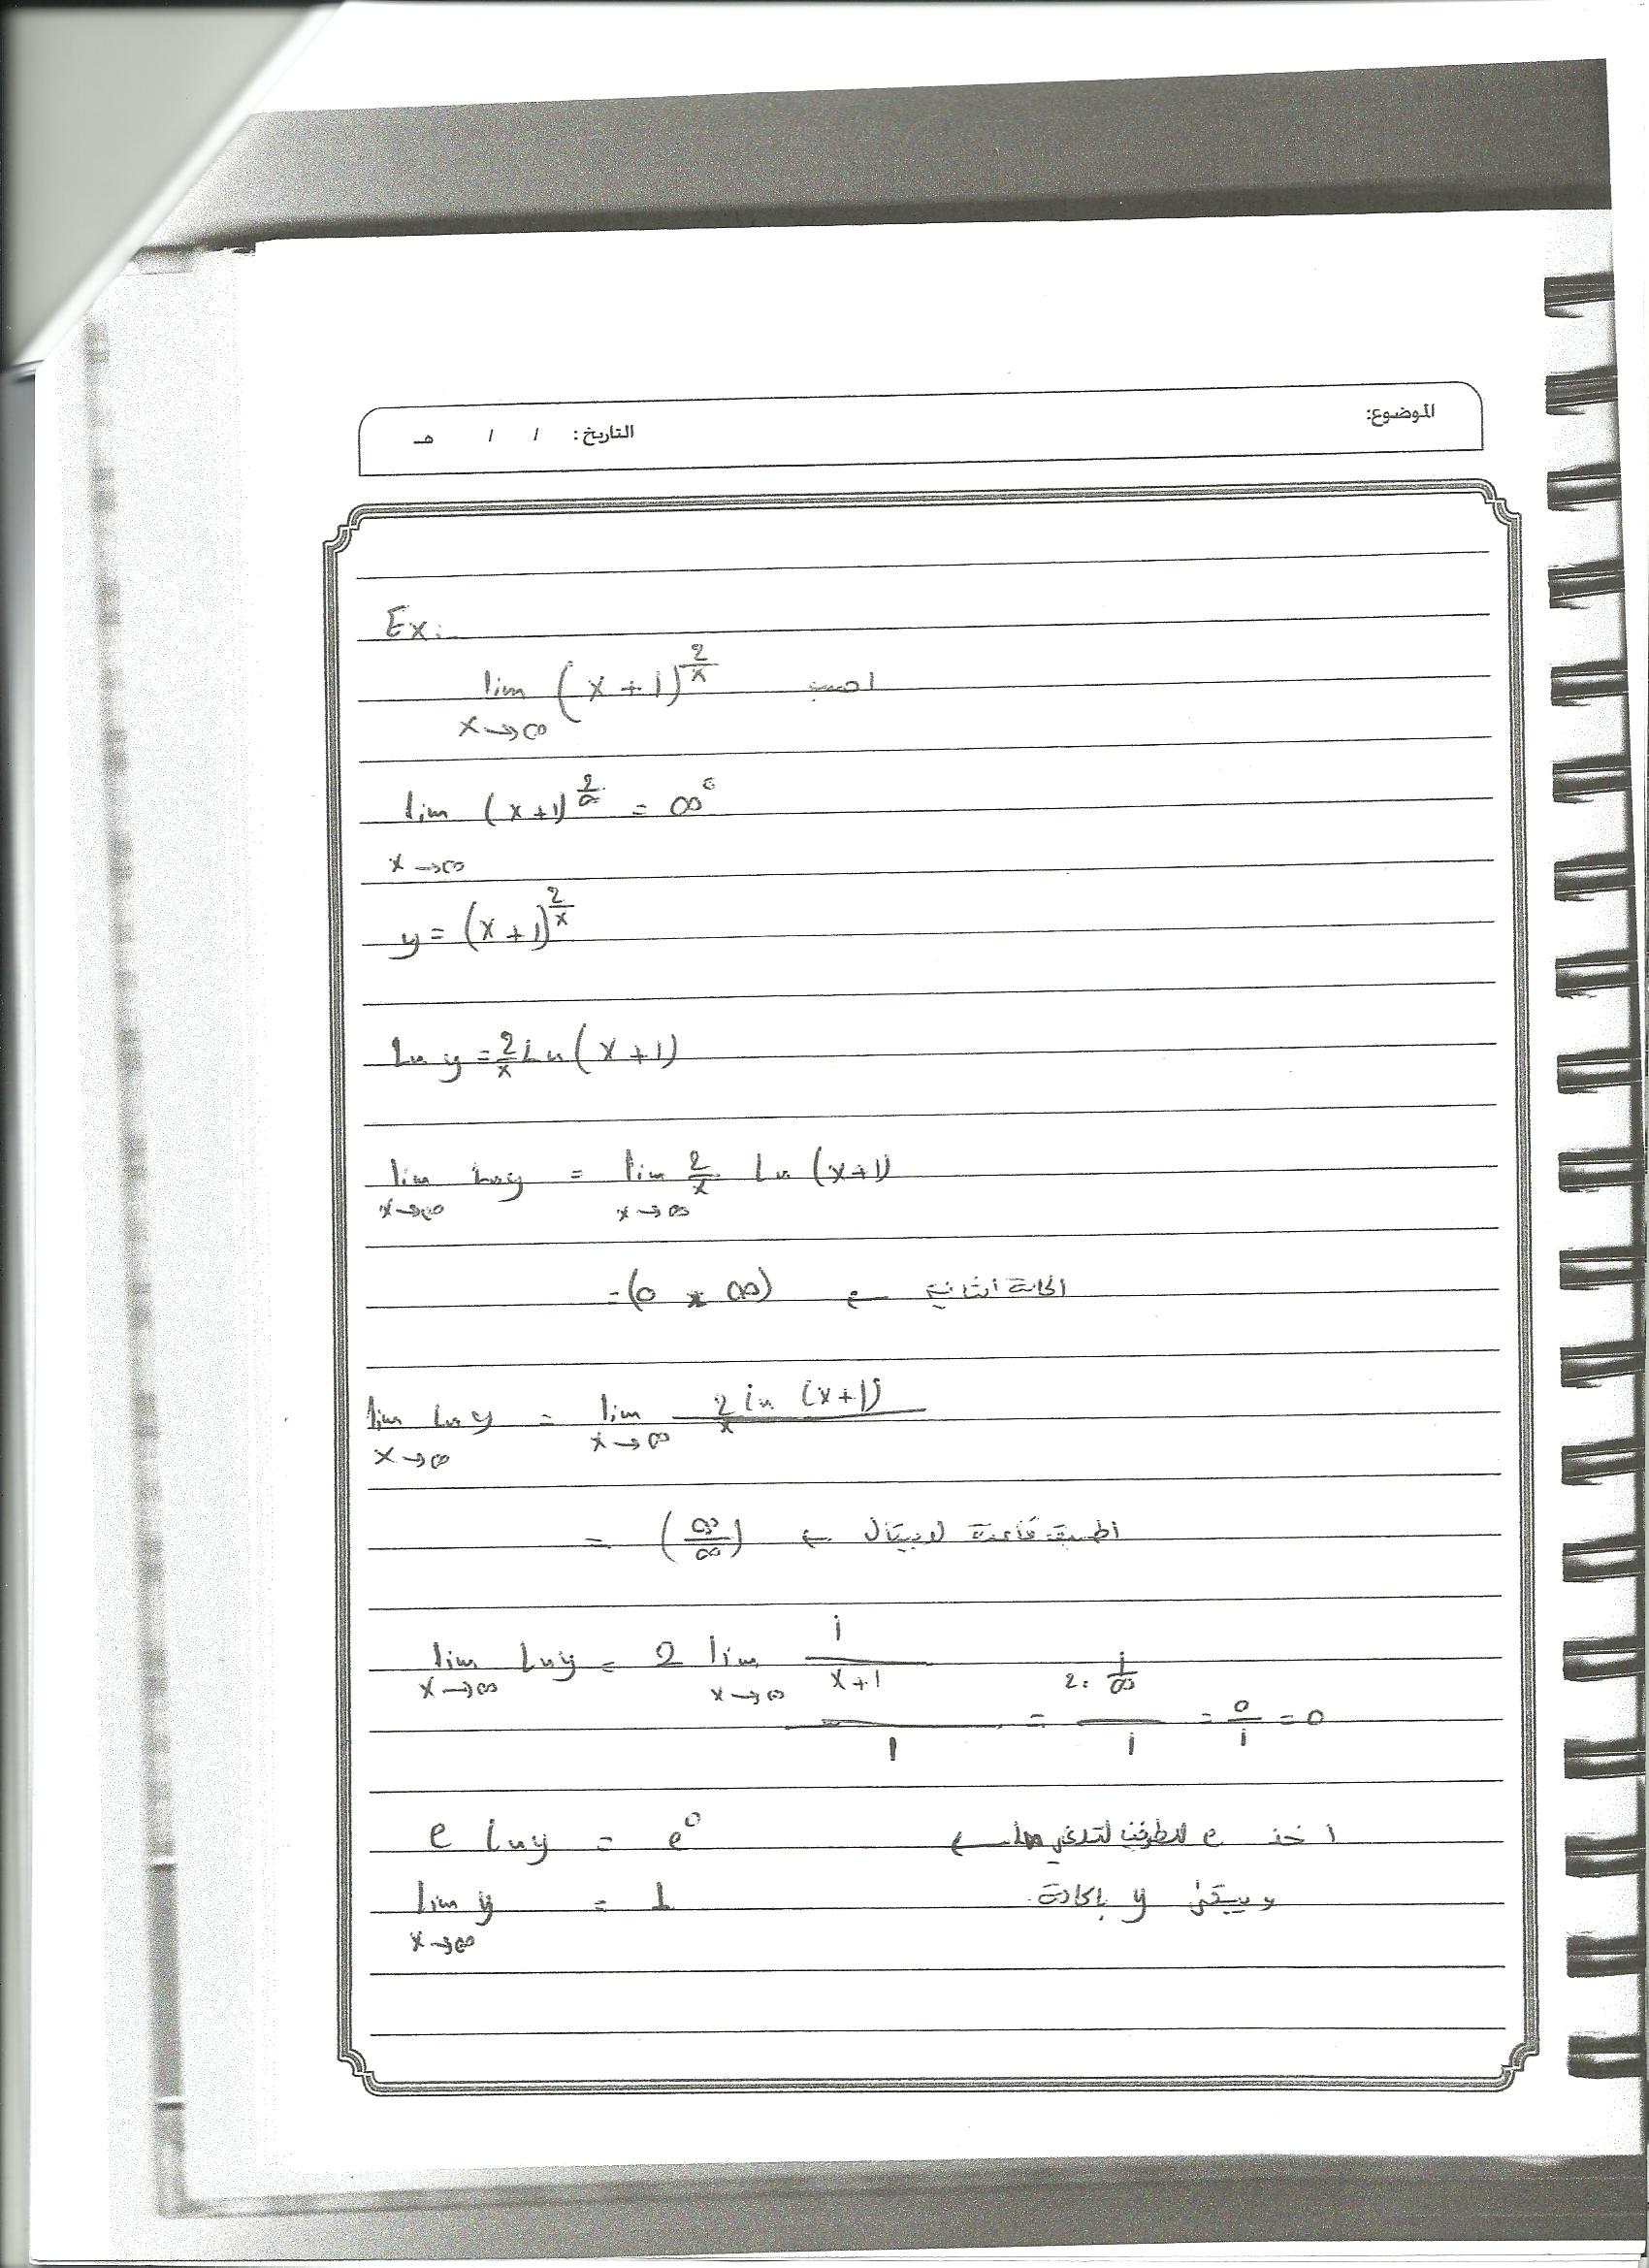 الموضوع:
التاريخ: / / هـ
Ex:-
lim (x+1)^(2/x) احسب
x→∞
lim (x+1)^(2/∞) = ∞°
x→∞
y = (x+1)^(2/x)
Ln y = 2/x Ln (x+1)
lim Ln y = lim 2/x Ln (x+1)
x→∞ x→∞
= (0 * ∞) ← الحالة الثانية
lim Ln y = lim 2 Ln (x+1) / x
x→∞ x→∞
= (∞/∞) ← اطبق قاعدة لوبيتال
lim Ln y = 2 lim 1/(x+1) / 1 = 2. 1/∞ / 1 = 0/1 = 0
x→∞ x→∞
e Ln y = e° اخذ e للطرفين لتلاغي Ln ←
lim y = 1 ويبقى y
x→∞